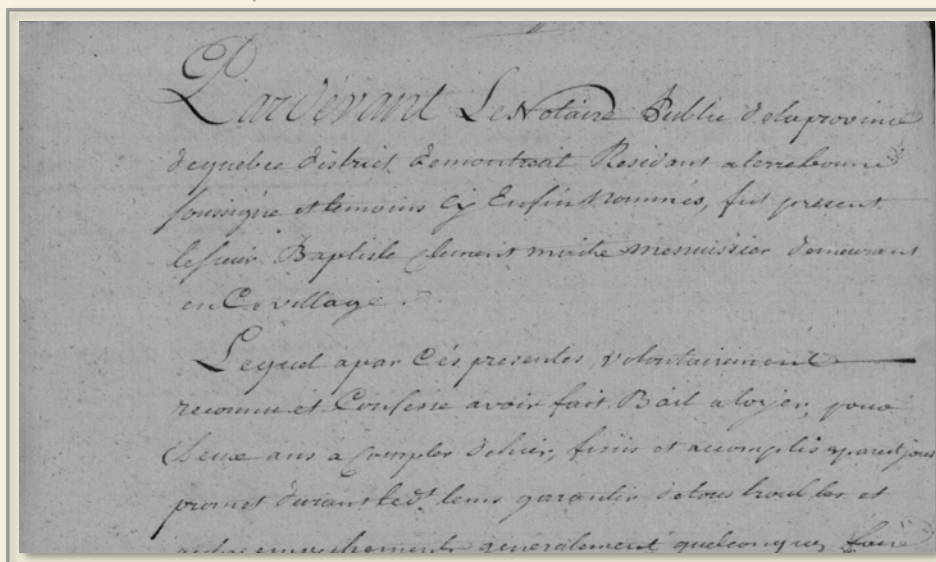 Pardevant Le Notaire Public delaprovince
dequebec District demontreal Residant aterrebonne
soussigné et temoins Cy Enfin Nommés, fut present
lesieur Baptiste Clement maitre menuissier demeurant
en Ce village.
Lequel apar Cés presentes volontairement
reconnu et Confesse avoir fait Bail aloyer, pour
Deux ans a Compter d'hier, finis et accomplis apareil jour
promet durant led.t tems garantir detous troubles et
autres empechements generalement quelconques faire